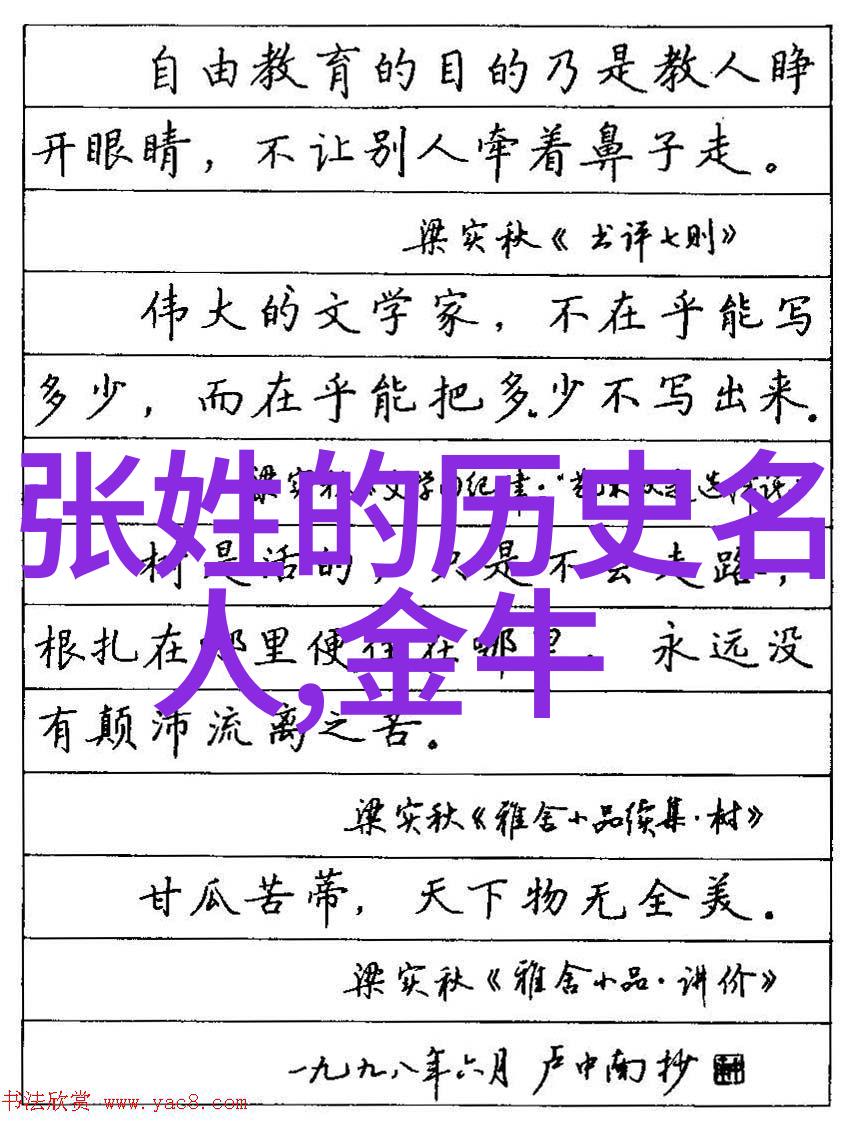 自由教育的目的乃是教人睁
开眼睛，不让别人牵着鼻子走。
梁实秋《书评七则》
伟大的文学家，不在乎能写
多少，而在乎能把多少不写出来。
梁实秋
张姓的历史名
树是活的，只是不会走路，
根扎在哪里便住在哪里，永远没
人,金牛
有颠沛流离之苦。
梁实秋《雅舍小品续集·树》
甘瓜苦蒂，天下物无全美。
梁实秋《雅舍小品·讲价》
一九九八年六月 卢中南抄
书法欣赏 www.yac8.com